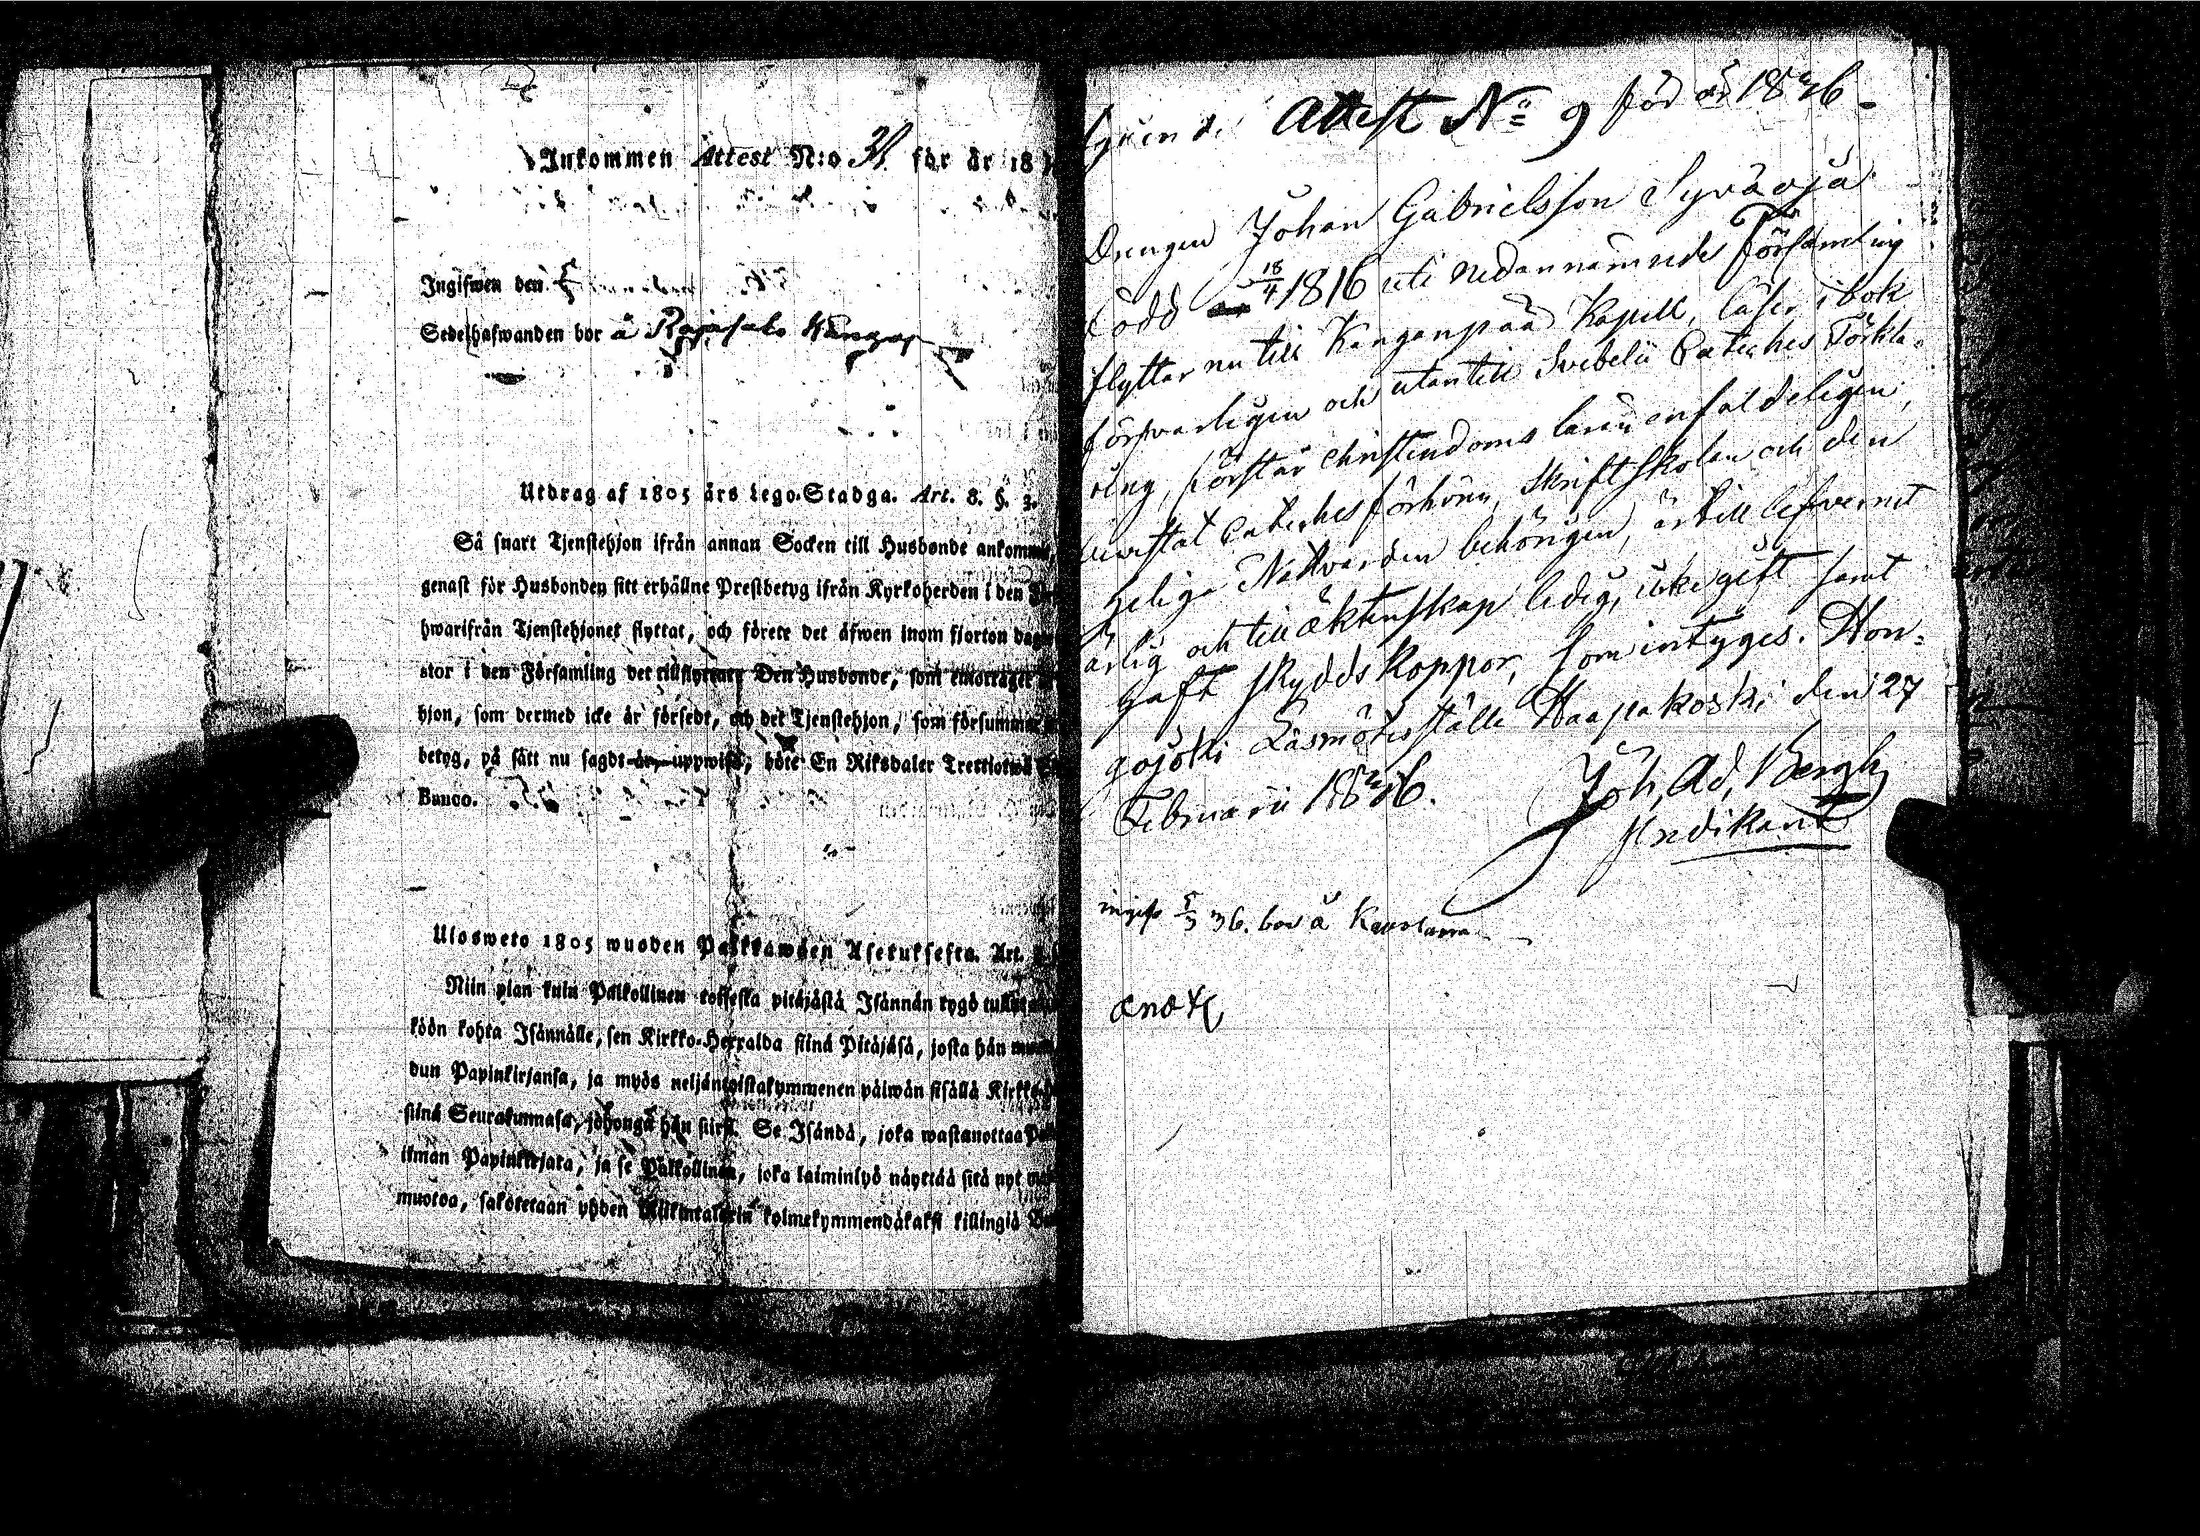 Inkommen Attest N:o 31. för år 18
Ingifwen den
Sedelhafwanden bor å
Utdrag af 1805 års Lego-Stadga. Art. 8. §. 3.
Så snart Tjenstehjon ifrån annan Socken till Husbonde ankomm
genast för Husbonden sitt erhållne Prestbetyg ifrån Kyrkoherden i den
hwarifrån Tjenstehjonet flyttat, och förete det äfwen inom fjorton dag
stor i den Församling det tillflyttat. Den Husbonde, som emottager
hjon, som dermed icke är försedt, och det Tjenstehjon, som försumm
betyg, på sätt nu sagdt är, uppwisa, böte En Riksdaler Trettiotwå
Banco.
Ulosweto 1805 wuoden Palkkawäen Asetuksesta. Art.
Niin pian kuin Palkollinen toisesta pitäjästä Isännän tygö tullut
köön kohta Isännälle, sen Kirkko-Herralda siinä Pitäjäsä, josta hän
dun Papinkirjansa, ja myös neljäntoistakymmenen päiwän sisällä Kirkko
siinä Seurakunnasa, johonga hän siirtä. Se Isändä, joka wastanottaa
ilman Papinkirjata, ja se Palkollinen, joka laiminlyö näyttää sitä nyt
muotoa, sakotetaan yhden Riikintalerin kolmekymmendäkaksi killingiä
Attest No 9 för år 1836
Drengen Johan Gabrielsson Syväoja
född 18/4 1816 uti nedannämnde Församling
flyttar nu till Kanganpää Kapell, läser i bok
försvarligen och utantill Svebelii Cateches Förkla-
ring, förstår Christendoms läran enfaldeligen,
bevistat Catechesförhören, Skriftskolan och den
Helige Nattvarden behörigen, är till lefvernet
ärlig och till äktenskap ledig, icke gift samt
haft skyddskoppor, som intyges. Hon-
gojoki Läsmötesställe Haapakoski den 27
Februarii 1836.
Joh. Ad. Bergh
Predikant
ingifv 5/3 36. bor å